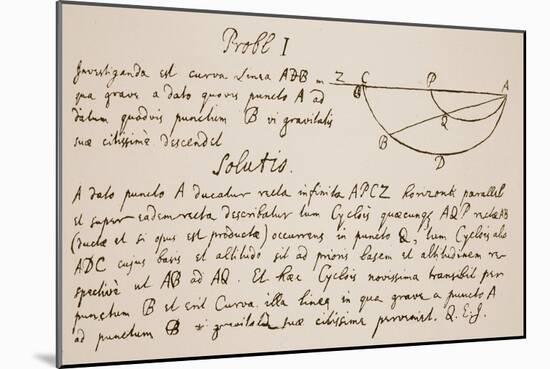 Probl I
Investiganda est curva Linea ADB in
Z C P A
qua grave a dato quovis puncto A ad
B Q
datum quodvis punctum B vi gravitatis
B D
suæ citissimè descendet
Solutio.
A dato puncto A ducatur recta infinita APCZ horizonti parallela
et super eadem recta describatur tum Cyclois quæcunq AQP rectæ AB
(ductæ et si opus est productæ) occurrens in puncto Q, tum Cyclois alia
ADC cujus basis et altitudo sit ad prioris basem et altitudinem re-
spectivè ut AB ad AQ. Et hæc Cyclois novissima transibit per
punctum B et erit Curva illa linea in qua grave a puncto A
ad punctum B vi gravitatis suæ citissime perveniet. Q.E.I.